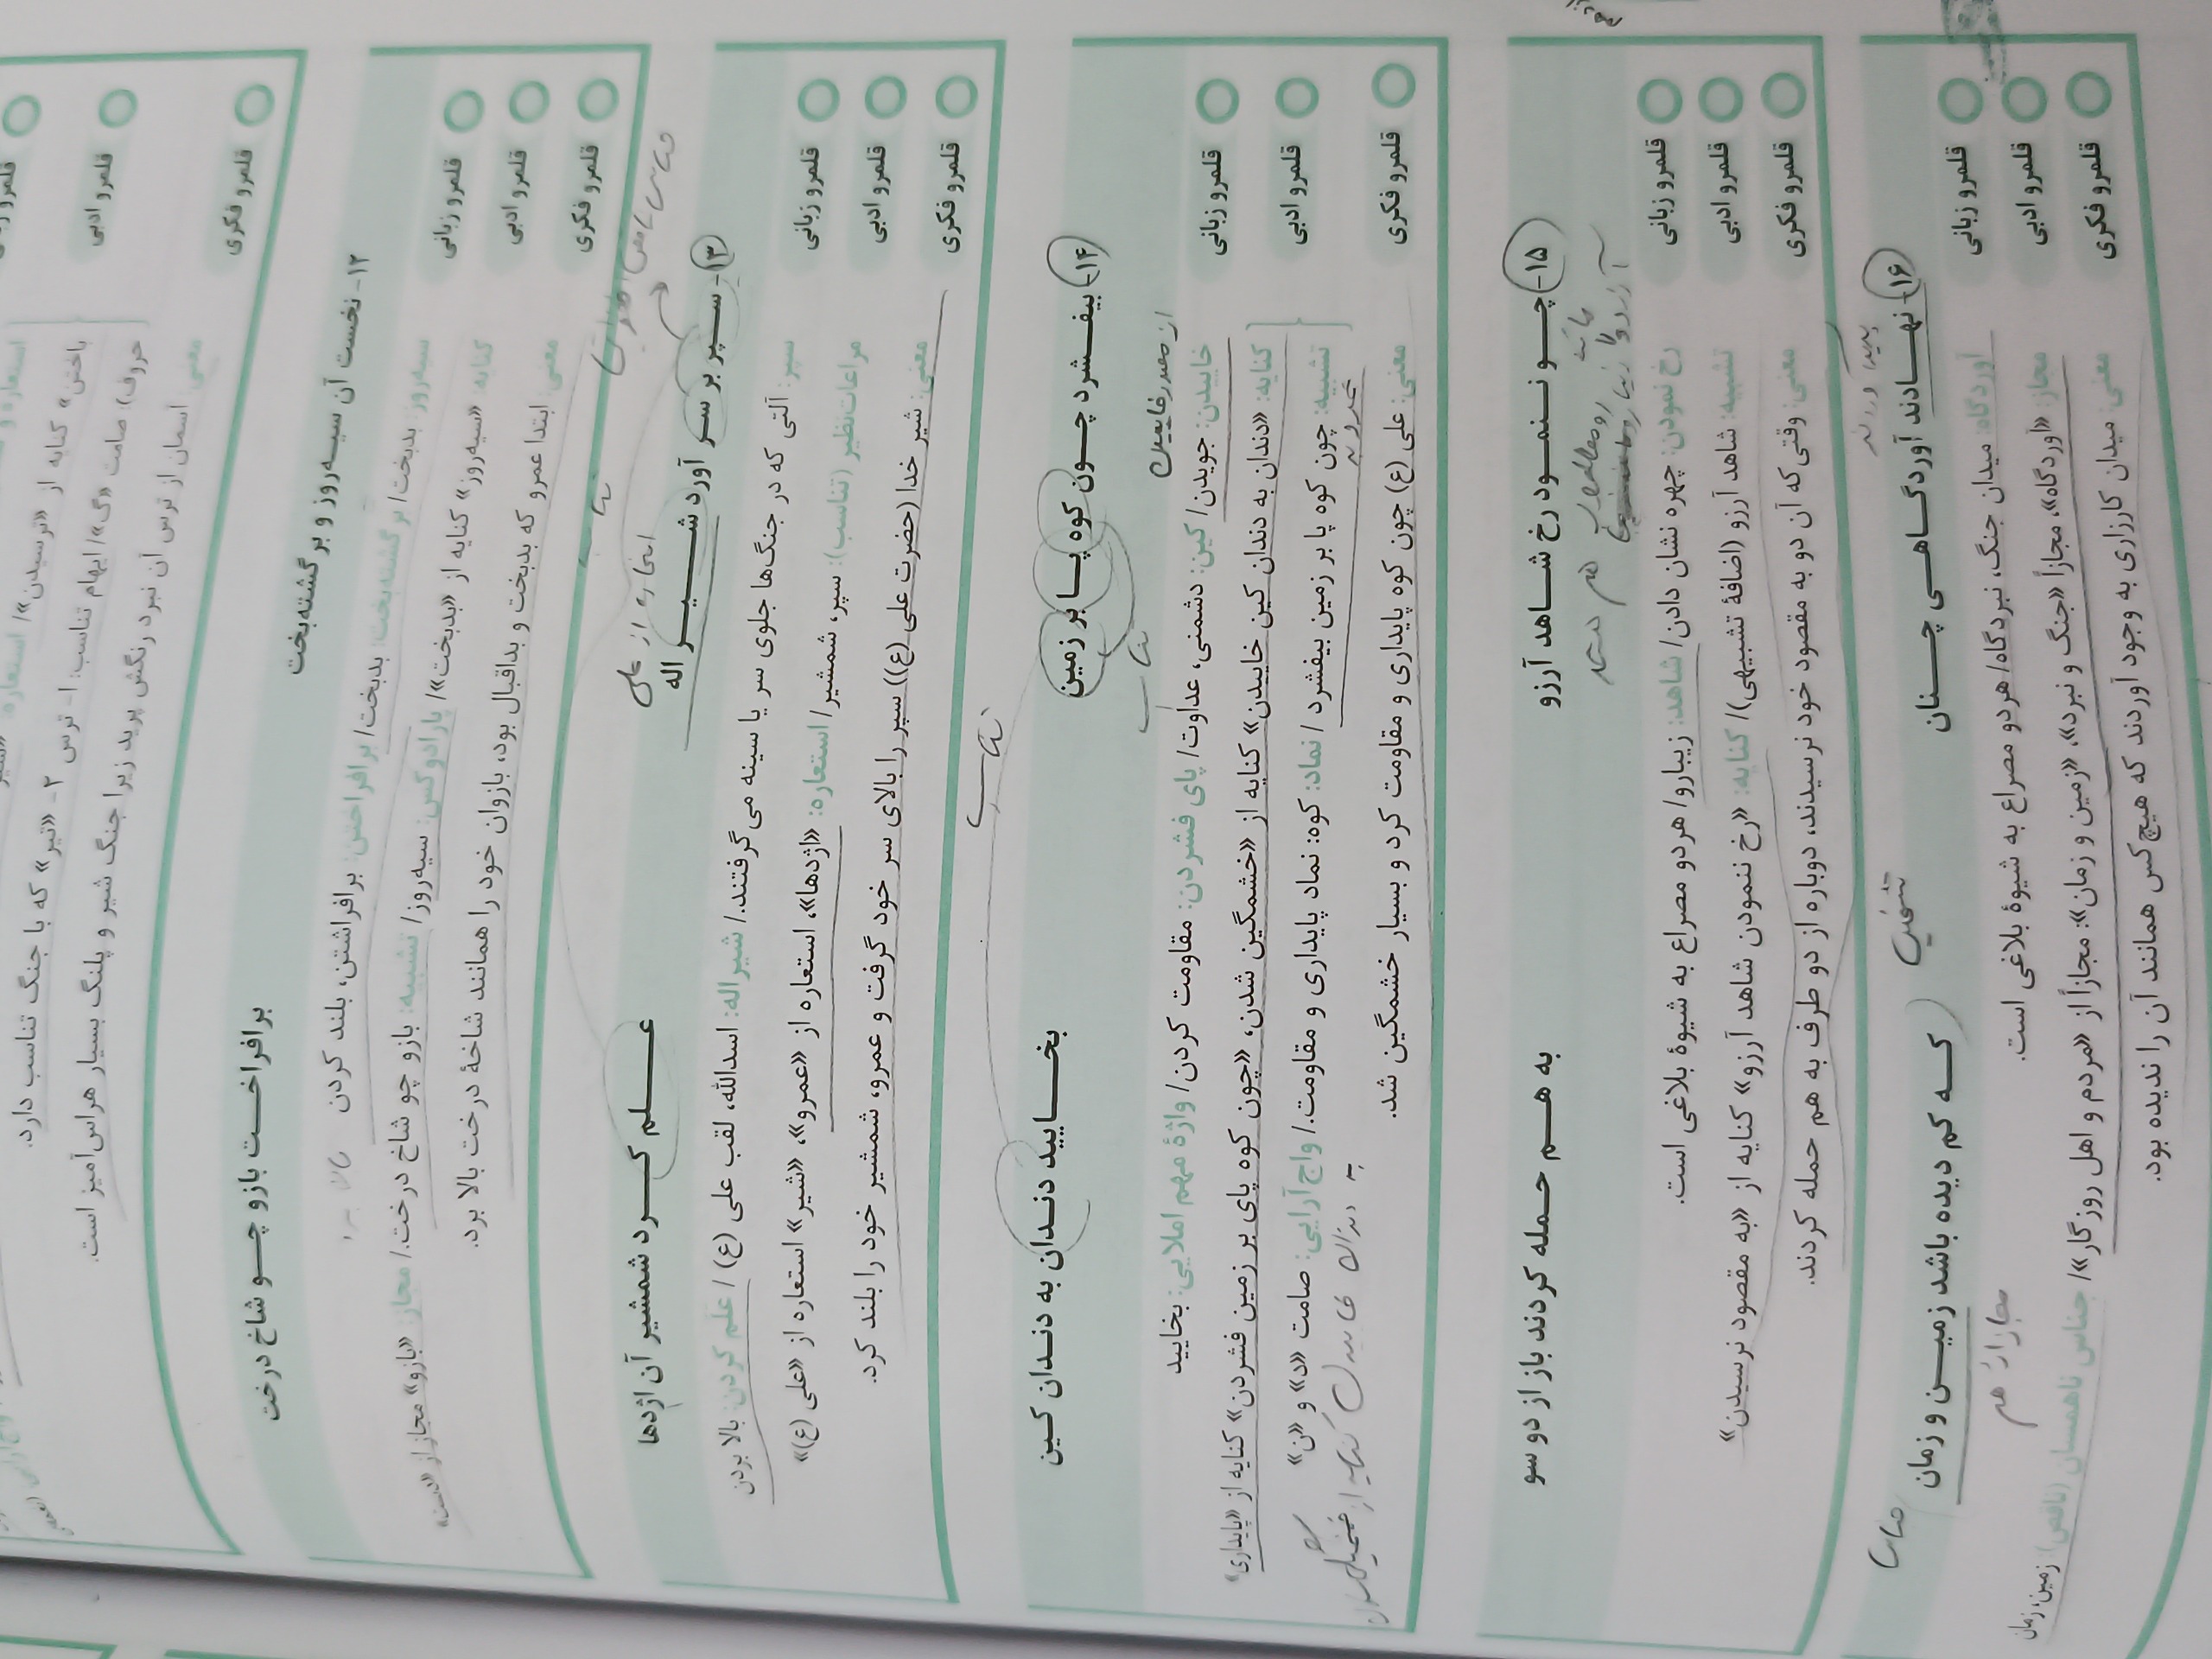 باختن» کنایه از «ترسیدن»/ استعاره:
قلمرو ادبی
حروف): صامت «گ»/ ایهام تناسب: ۱- ترس ۲- «تیر» که با جنگ تناسب دارد.
قلمرو فکری
معنی: آسمان از ترس آن نبرد رنگش پرید زیرا جنگ شیر و پلنگ بسیار هراس‌آمیز است.
۱۲- نخست آن سیه‌روز و برگشته‌بخت
برافراخت بازو چو شاخ درخت
قلمرو زبانی
سیه‌روز: بدبخت/ برگشته‌بخت: بدبخت/ برافراختن: برافراشتن، بلند کردن
قلمرو ادبی
کنایه: «سیه‌روز» کنایه از «بدبخت»/ پارادوکس: سیه‌روز/ تشبیه: بازو چو شاخ درخت./ مجاز: «بازو» مجاز از «دست»
قلمرو فکری
معنی: ابتدا عمرو که بدبخت و بداقبال بود، بازوان خود را همانند شاخهٔ درخت بالا برد.
۱۳- سپر بر سر آورد شیر اله
علم کرد شمشیر آن اژدها
قلمرو زبانی
سپر: آلتی که در جنگ‌ها جلوی سر یا سینه می‌گرفتند./ شیر اله: اسدالله، لقب علی (ع)/ علم کردن: بالا بردن
قلمرو ادبی
مراعات‌نظیر (تناسب): سپر، شمشیر/ استعاره: «اژدها»، استعاره از «عمرو»، «شیر» استعاره از «علی (ع)»
قلمرو فکری
معنی: شیر خدا (حضرت علی (ع)) سپر را بالای سر خود گرفت و عمرو، شمشیر خود را بلند کرد.
۱۴- بیفشرد چون کوه پا بر زمین
بخایید دندان به دندان کین
از مصدر خاییدن
قلمرو زبانی
خاییدن: جویدن/ کین: دشمنی، عداوت/ پای فشردن: مقاومت کردن/ واژهٔ مهم املایی: بخایید
قلمرو ادبی
کنایه: «دندان به دندان کین خاییدن» کنایه از «خشمگین شدن، «چون کوه پای بر زمین فشردن» کنایه از «پایداری»
تشبیه: چون کوه پا بر زمین بیفشرد/ نماد: کوه: نماد پایداری و مقاومت./ واج‌آرایی: صامت «د» و «ن»
قلمرو فکری
معنی: علی (ع) چون کوه پایداری و مقاومت کرد و بسیار خشمگین شد.
۱۵- چو ننمود رخ شاهد آرزو
به هم حمله کردند باز از دو سو
قلمرو زبانی
رخ نمودن: چهره نشان دادن/ شاهد: زیبارو/ هر دو مصراع به شیوهٔ بلاغی است.
قلمرو ادبی
تشبیه: شاهد آرزو (اضافهٔ تشبیهی)/ کنایه: «رخ ننمودن شاهد آرزو» کنایه از «به مقصود نرسیدن»
قلمرو فکری
معنی: وقتی که آن دو به مقصود خود نرسیدند، دوباره از دو طرف به هم حمله کردند.
۱۶- نهادند آوردگاهی چنان
که کم دیده باشد زمین و زمان
قلمرو زبانی
آوردگاه: میدان جنگ، نبردگاه/ هر دو مصراع به شیوهٔ بلاغی است.
قلمرو ادبی
مجاز: «آوردگاه»، مجازاً «جنگ و نبرد»، «زمین و زمان»: مجازاً از «مردم و اهل روزگار»/ جناس ناهمسان (ناقص): زمین، زمان
قلمرو فکری
معنی: میدان کارزاری به وجود آوردند که هیچ‌کس همانند آن را ندیده بود.